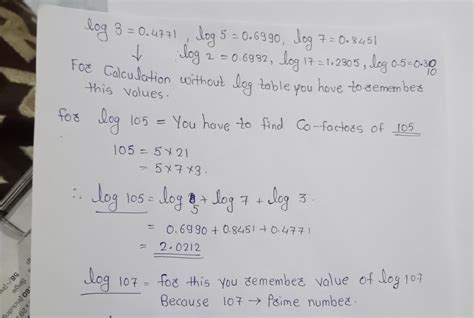 log 3 = 0.4771 , log 5 = 0.6990, log 7 = 0.8451
↓ log 2 = 0.6932, log 17 = 1.2305, log 0.5 = 0.30
10
For Calculation without log table you have to remember
this values.
for log 105 = You have to find Co-factors of 105
105 = 5 × 21
= 5 × 7 × 3.
∴ log 105 = log 5 + log 7 + log 3.
= 0.6990 + 0.8451 + 0.4771
= 2.0212
log 107 = for this you remember value of log 107
Becouse 107 → Prime number.